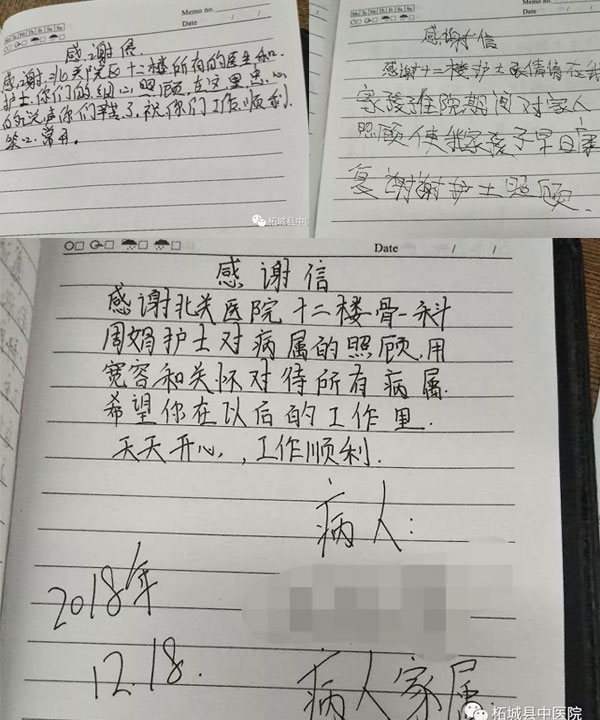 Memo no.
Date / /
感谢信.
感谢北关院区十二楼所有的医生和
护士.你们的细心照顾.在这里忠心
的说声你们辛苦了.祝你们工作顺利.
笑口常开.
柘城县中医
Mo Tu We Th Fr Sa Su
Memo no.
Date / /
感谢信
感谢十二楼护士 倩倩在我
家孩子住院期间对家人
照顾使我家孩子早日康
复谢谢护士照顾.
Date / /
感谢信
感谢北关医院十二楼骨一科
周娟护士对病属的照顾.用
宽容和关怀对待所有病属.
希望你在以后的工作里.
天天开心,工作顺利.
病人:
2018年
12.18.
病人家属
柘城县中医院